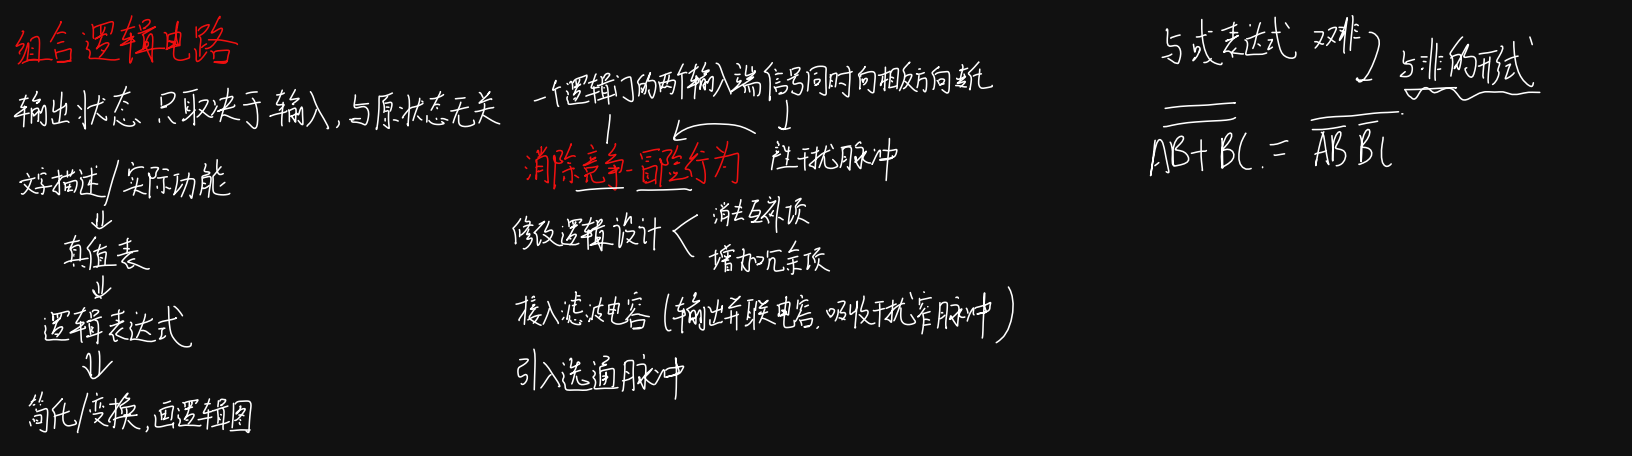 组合逻辑电路
输出状态 只取决于输入,与原状态无关
文字描述/实际功能
⇓
真值表
⇓
逻辑表达式
⇓
简化/变换,画逻辑图
一个逻辑门的两个输入端信号同时向相反方向变化
消除竞争-冒险行为
产生干扰脉冲
修改逻辑设计 <
消去互补项
增加冗余项
接入滤波电容(输出并联电容,吸收干扰窄脉冲)
引入选通脉冲
与或表达式 双非
与非的形式
$\overline{\overline{AB+BC}} = \overline{\overline{AB}\,\overline{BC}}$